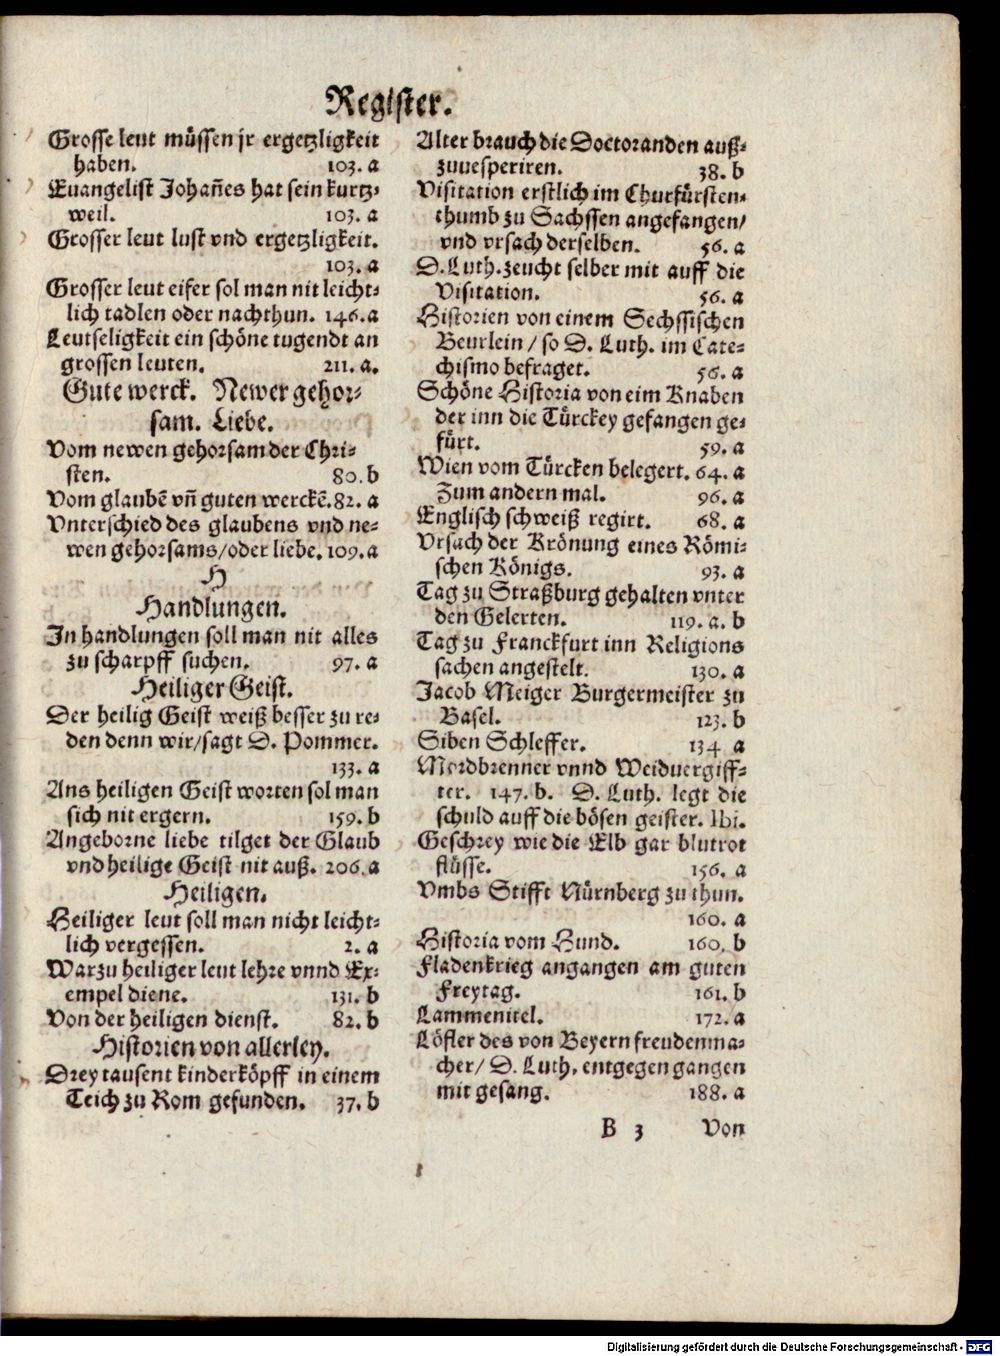 Register.
Grosse leut müssen jr ergetzligkeit
haben. 103. a
Euangelist Johañes hat sein kurtz-
weil. 103. a
Grosser leut lust vnd ergetzligkeit.
103. a
Grosser leut eifer sol man nit leicht-
lich tadlen oder nachthun. 146. a
Leutseligkeit ein schöne tugendt an
grossen leuten. 211. a.
Gute werck. Newer gehor-
sam. Liebe.
Vom newen gehorsam der Chri-
sten. 80. b
Vom glaubē vñ guten werckē. 82. a
Vnterschied des glaubens vnd ne-
wen gehorsams/oder liebe. 109. a
H
Handlungen.
In handlungen soll man nit alles
zu scharpff suchen. 97. a
Heiliger Geist.
Der heilig Geist weiß besser zu re-
den denn wir/sagt D. Pommer.
133. a
Ans heiligen Geist worten sol man
sich nit ergern. 159. b
Angeborne liebe tilget der Glaub
vnd heilige Geist nit auß. 206. a
Heiligen.
Heiliger leut soll man nicht leicht-
lich vergessen. 2. a
Warzu heiliger leut lehre vnnd Ex-
empel diene. 131. b
Von der heiligen dienst. 82. b
Historien von allerley.
Drey tausent kinderköpff in einem
Teich zu Rom gefunden. 37. b
Alter brauch die Doctoranden auß-
zuuesperiren. 38. b
Visitation erstlich im Churfürsten-
thumb zu Sachssen angefangen/
vnd vrsach derselben. 56. a
D. Luth. zeucht selber mit auff die
Visitation. 56. a
Historien von einem Sechssischen
Beurlein / so D. Luth. im Cate-
chismo befraget. 56. a
Schöne Historia von eim Knaben
der inn die Türckey gefangen ge-
fürt. 59. a
Wien vom Türcken belegert. 64. a
Zum andern mal. 96. a
Englisch schweiß regirt. 68. a
Vrsach der Krönung eines Römi-
schen Königs. 93. a
Tag zu Straßburg gehalten vnter
den Gelerten. 119. a. b
Tag zu Franckfurt inn Religions
sachen angestelt. 130. a
Jacob Meiger Burgermeister zu
Basel. 123. b
Siben Schleffer. 134 a
Mordbrenner vnnd Weiduergiff-
ter. 147. b. D. Luth. legt die
schuld auff die bösen geister. Ibi.
Geschrey wie die Elb gar blutrot
flüsse. 156. a
Vmbs Stifft Nürnberg zu thun.
160. a
Historia vom Hund. 160. b
Fladenkrieg angangen am guten
Freytag. 161. b
Lammenitel. 172. a
Löfler des von Beyern freudenma-
cher/ D. Luth. entgegen gangen
mit gesang. 188. a
B 3 Von
Digitalisierung gefördert durch die Deutsche Forschungsgemeinschaft - DFG